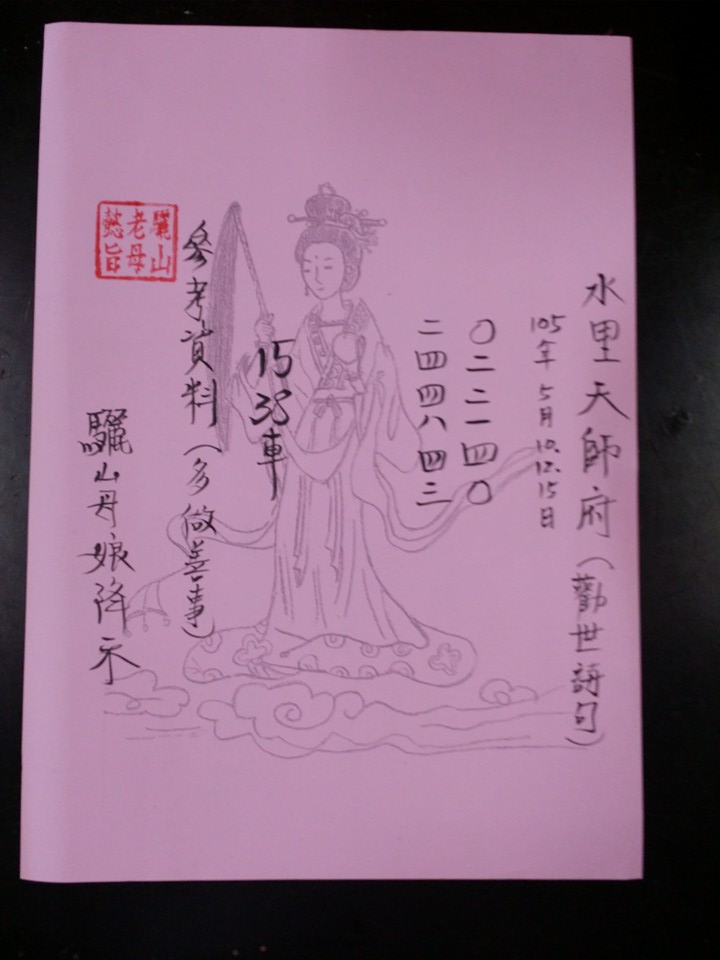 水里天師府(勸世語句)
105年5月10.12.15日
〇二二一四〇
二四四八四三
15 38車
參考資料(多做善事)
驪山老母懿旨
驪山母娘降示